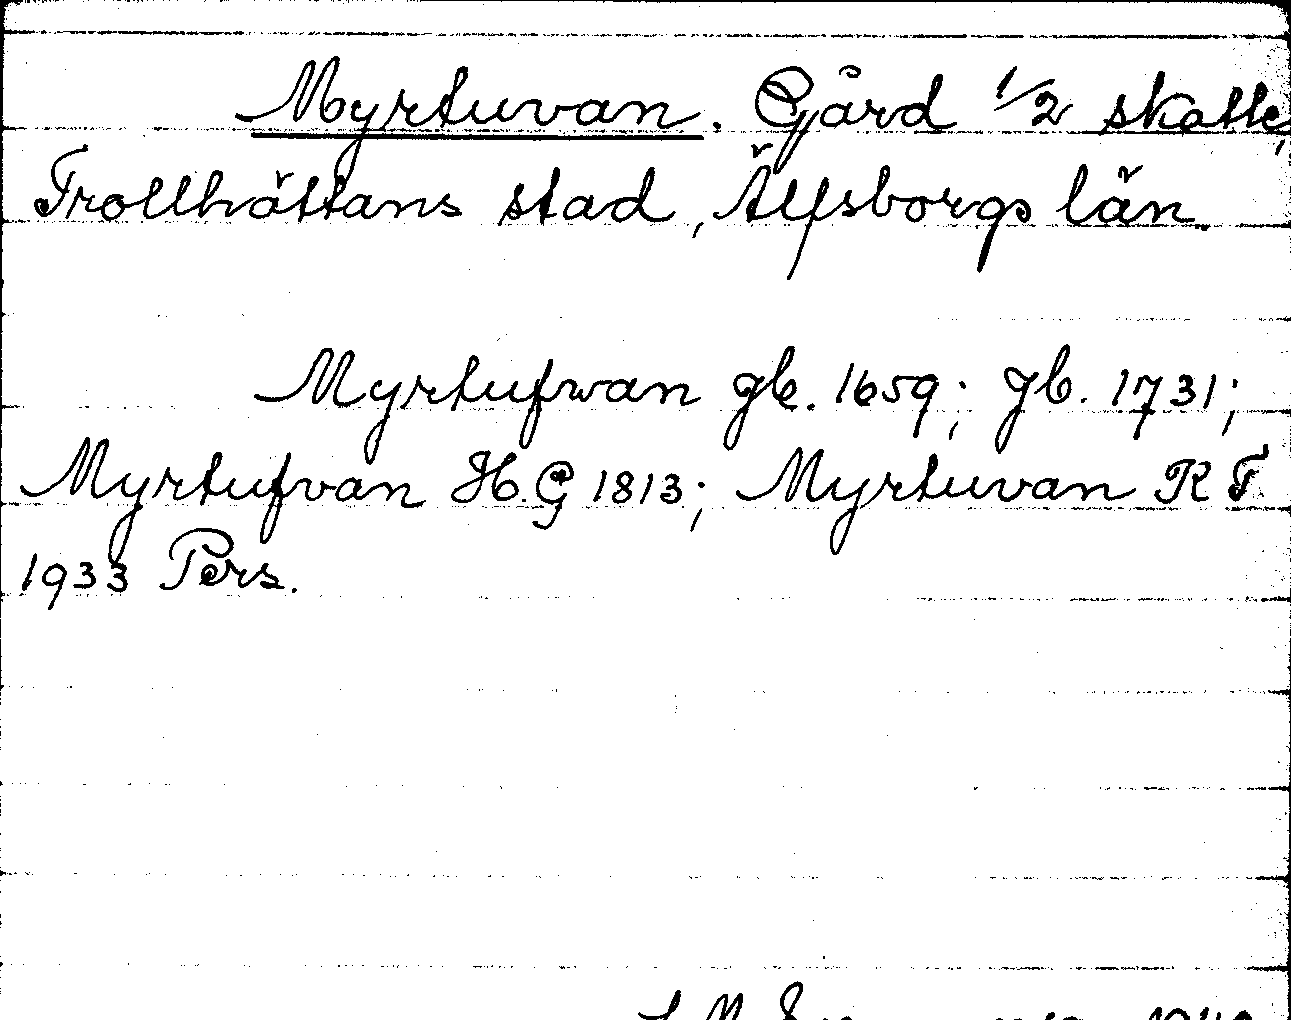 Myrtuvan. Gård 1/2 skatte,
Trollhättans stad, Älfsborgs län.
Myrtufwan gb. 1659; Jb. 1731;
Myrtufvan H.G 1813; Myrtuvan R F
1933 Pers.